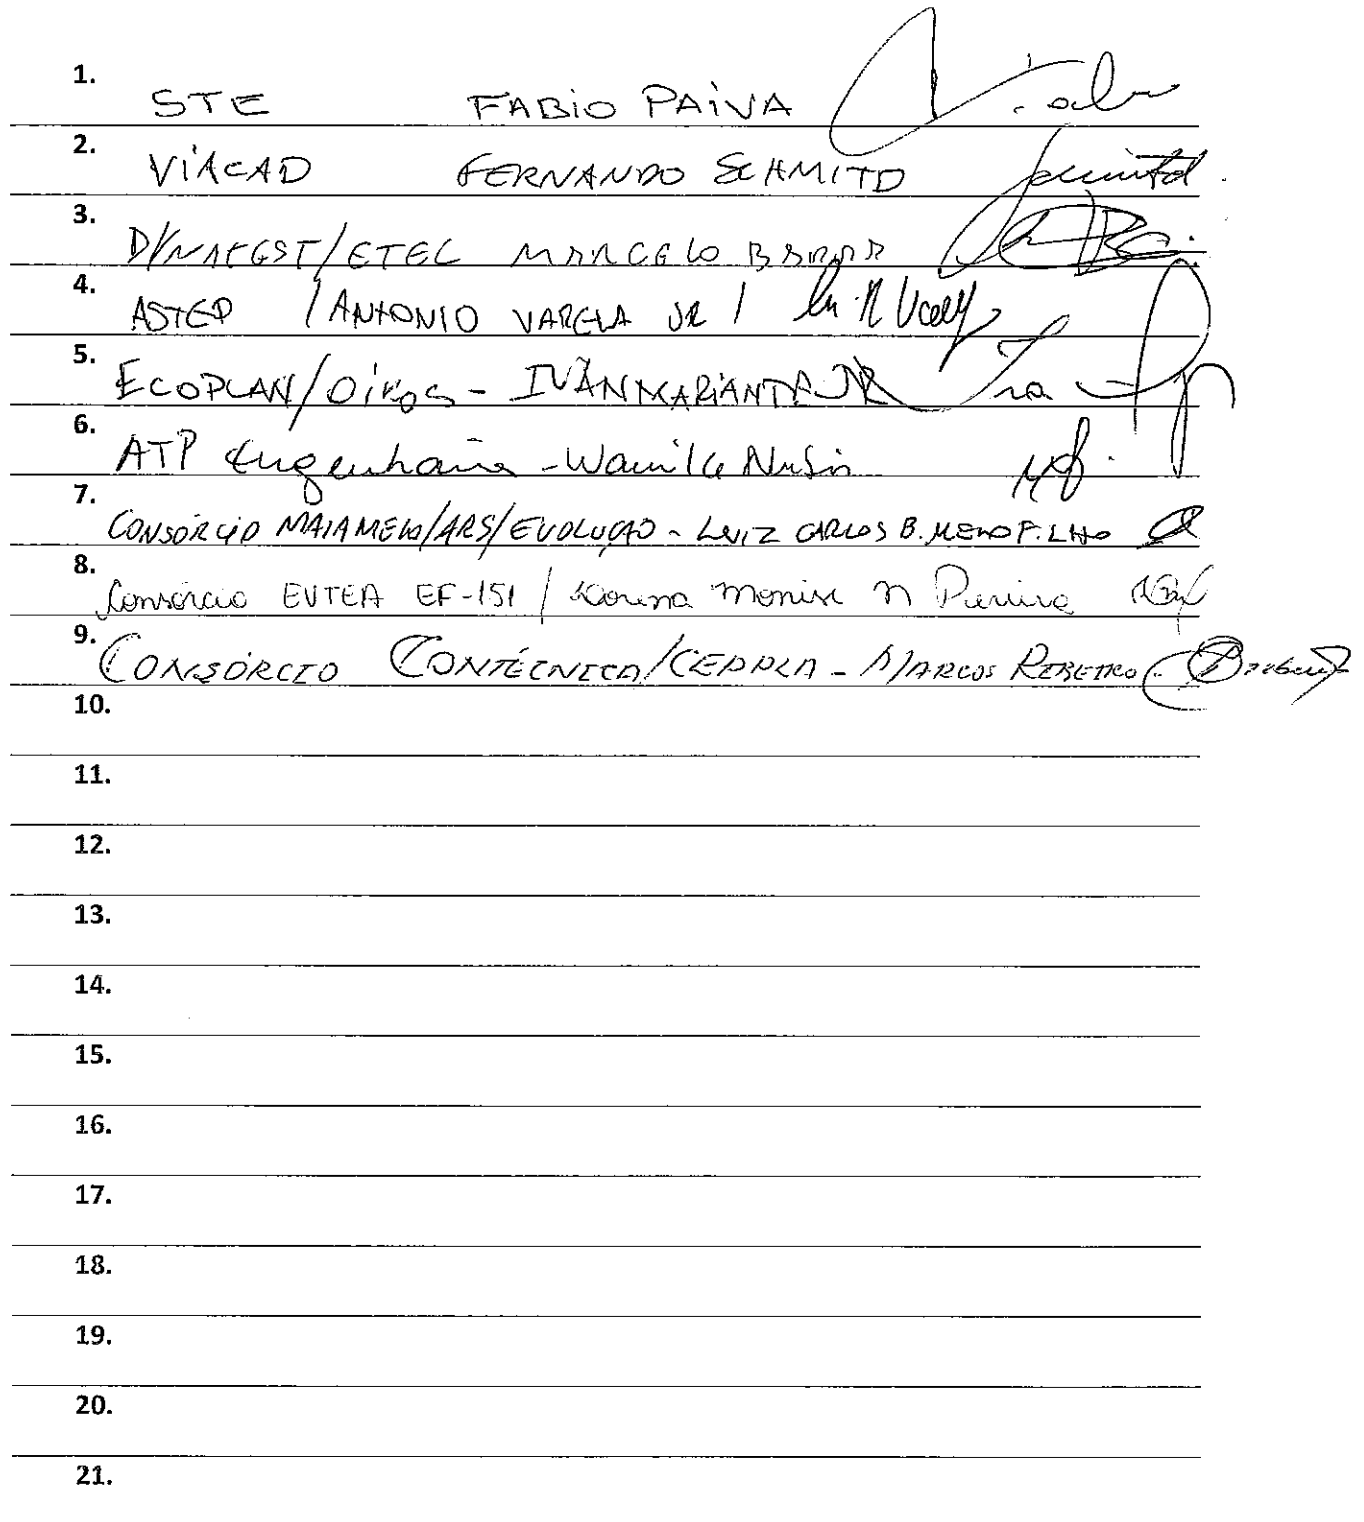 1. STE FABIO PAIVA
2. VIACAD FERNANDO SCHMITD
3. DYNATEST/ETEC MARCELO
4. ASTEP / ANTONIO VARELA JR /
5. ECOPLAN/OIKOS - IVAN MARIANTE JR
6. ATP Engenharia -
7. CONSÓRCIO MAIA MELO/ARS/EVOLUÇÃO - LUIZ CARLOS B. MELO FILHO
8. Consórcio EVTEA EF-151 / Monise N
9. CONSÓRCIO CONTÉCNICA/ - MARCOS RIBEIRO
10.
11.
12.
13.
14.
15.
16.
17.
18.
19.
20.
21.